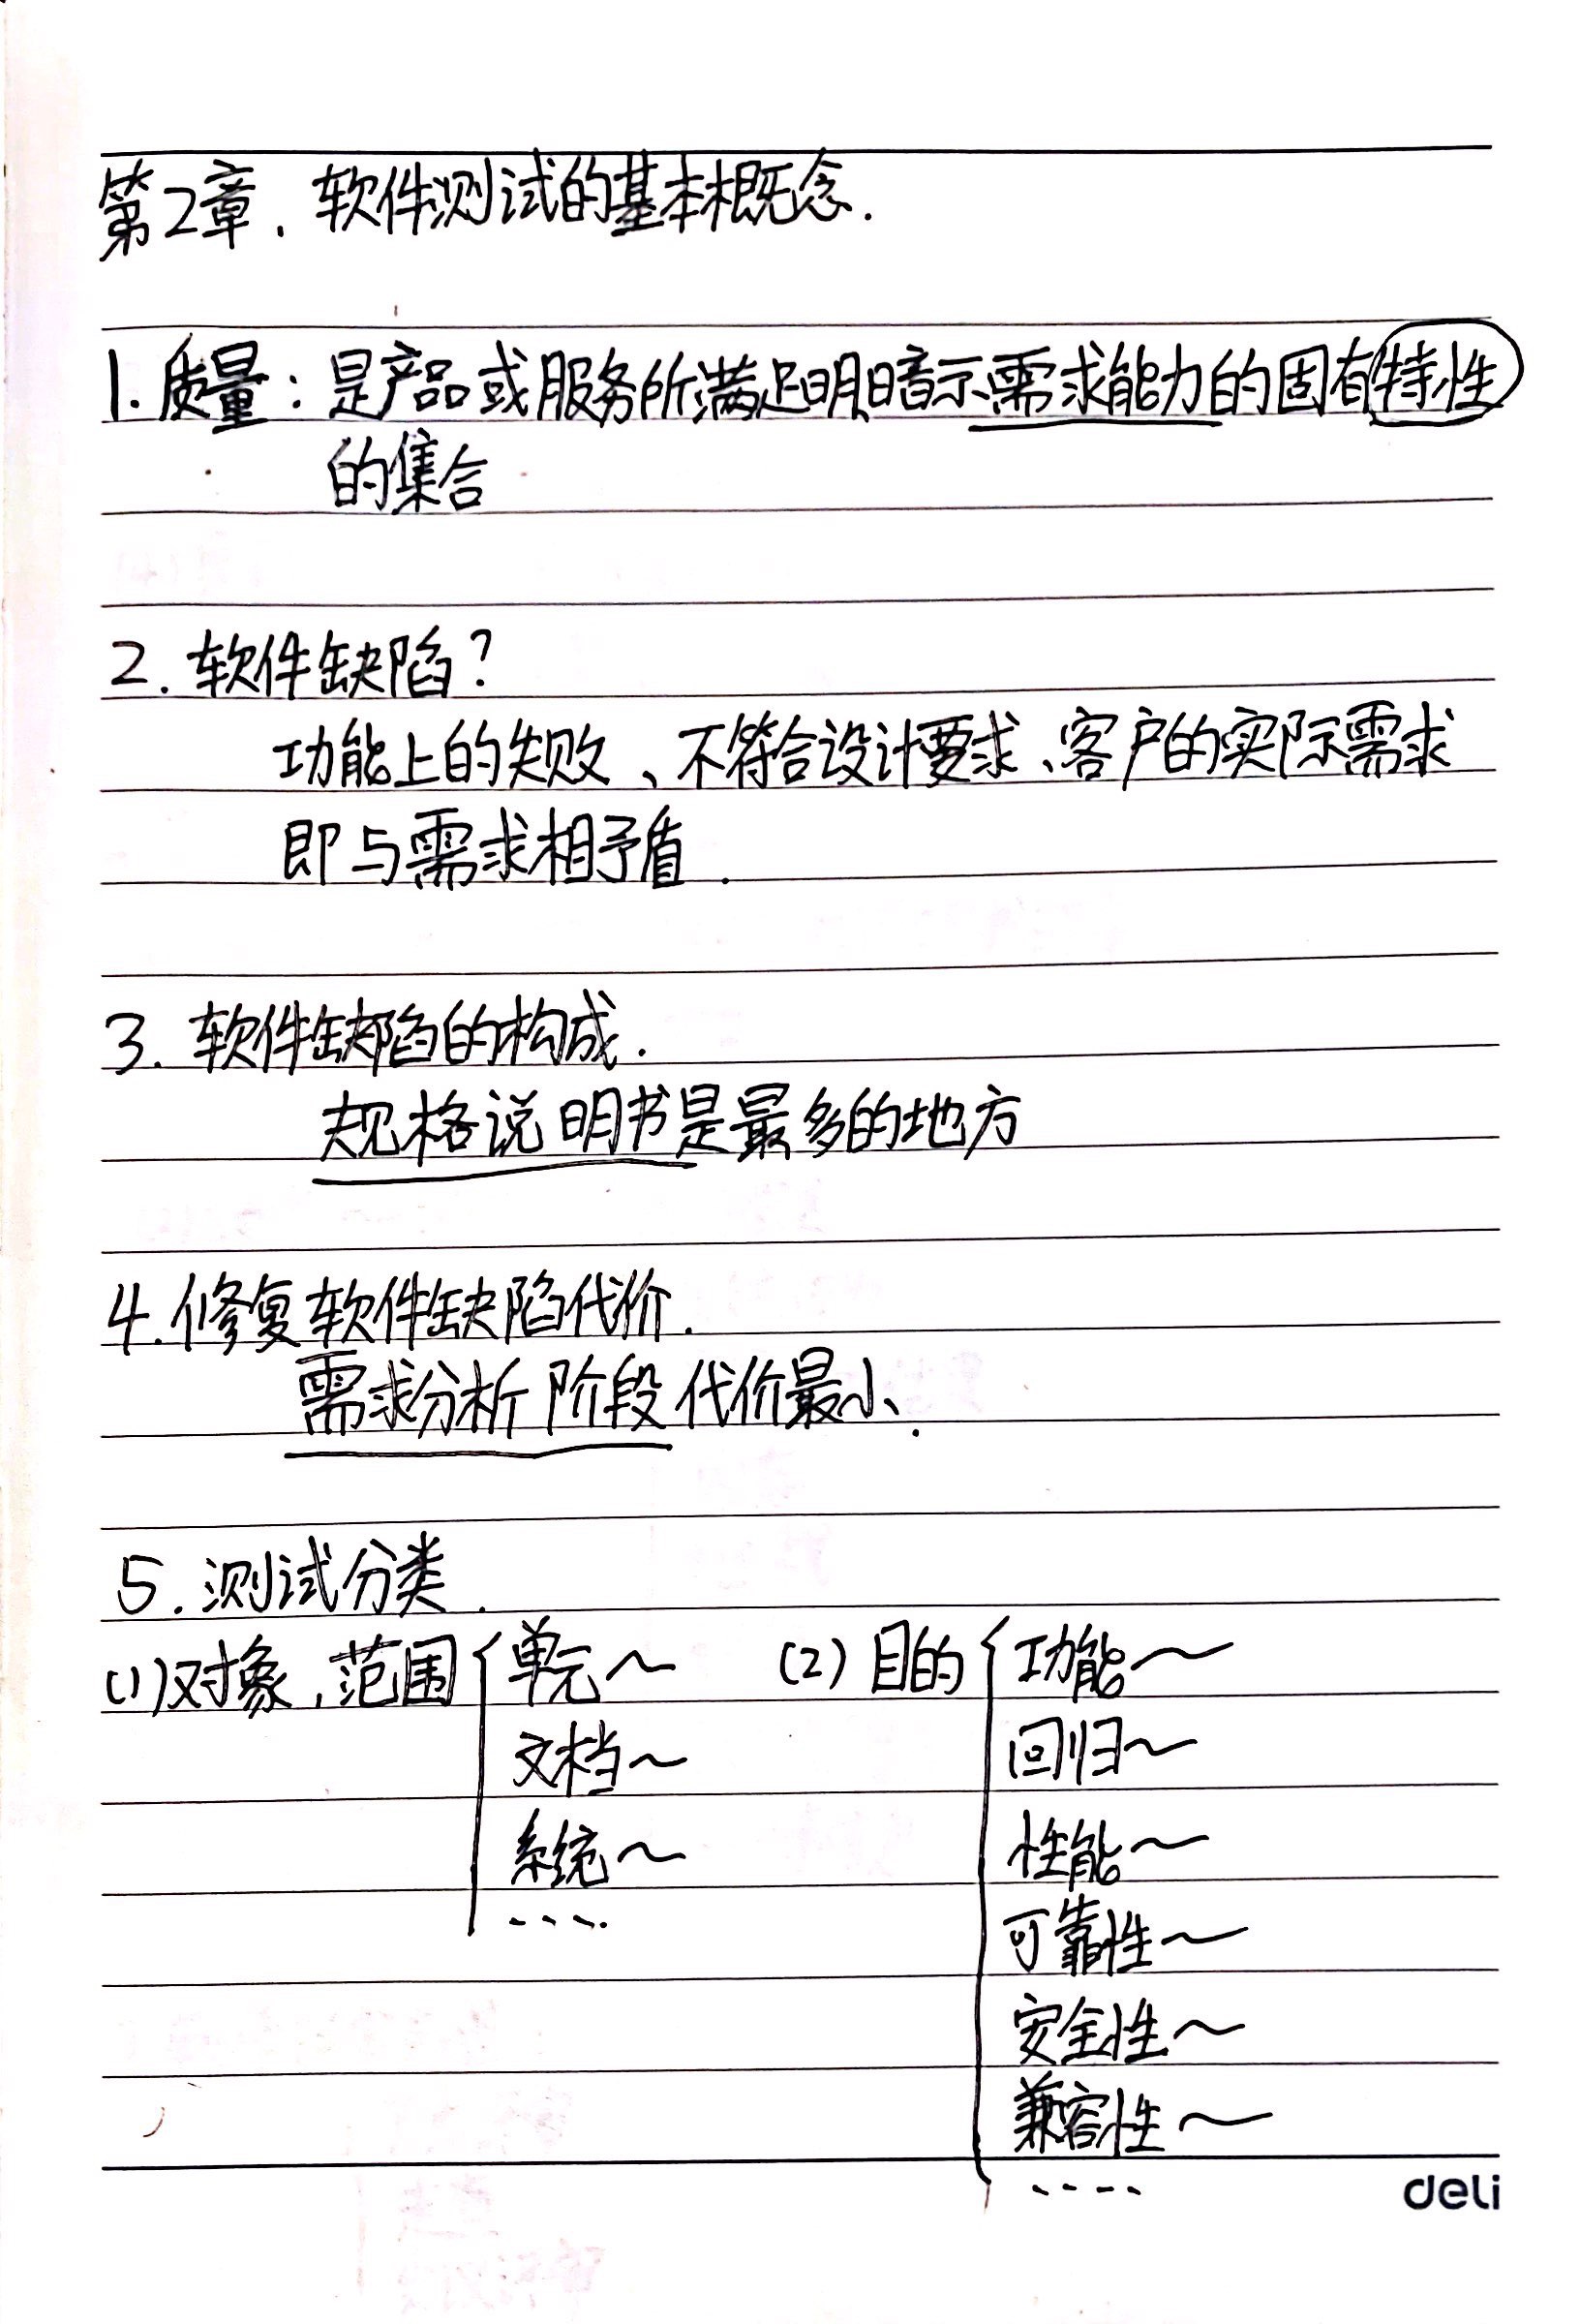 第2章. 软件测试的基本概念.
1. 质量: 是产品或服务所满足明暗示需求能力的固有特性
的集合
2. 软件缺陷?
功能上的失败、不符合设计要求、客户的实际需求
即与需求相矛盾.
3. 软件缺陷的构成.
规格说明书是最多的地方
4. 修复软件缺陷代价.
需求分析阶段代价最小.
5. 测试分类.
(1)对象, 范围 { 单元~ (2) 目的 { 功能~
文档~ 回归~
系统~ 性能~
.... 可靠性~
安全性~
兼容性~
....
deli